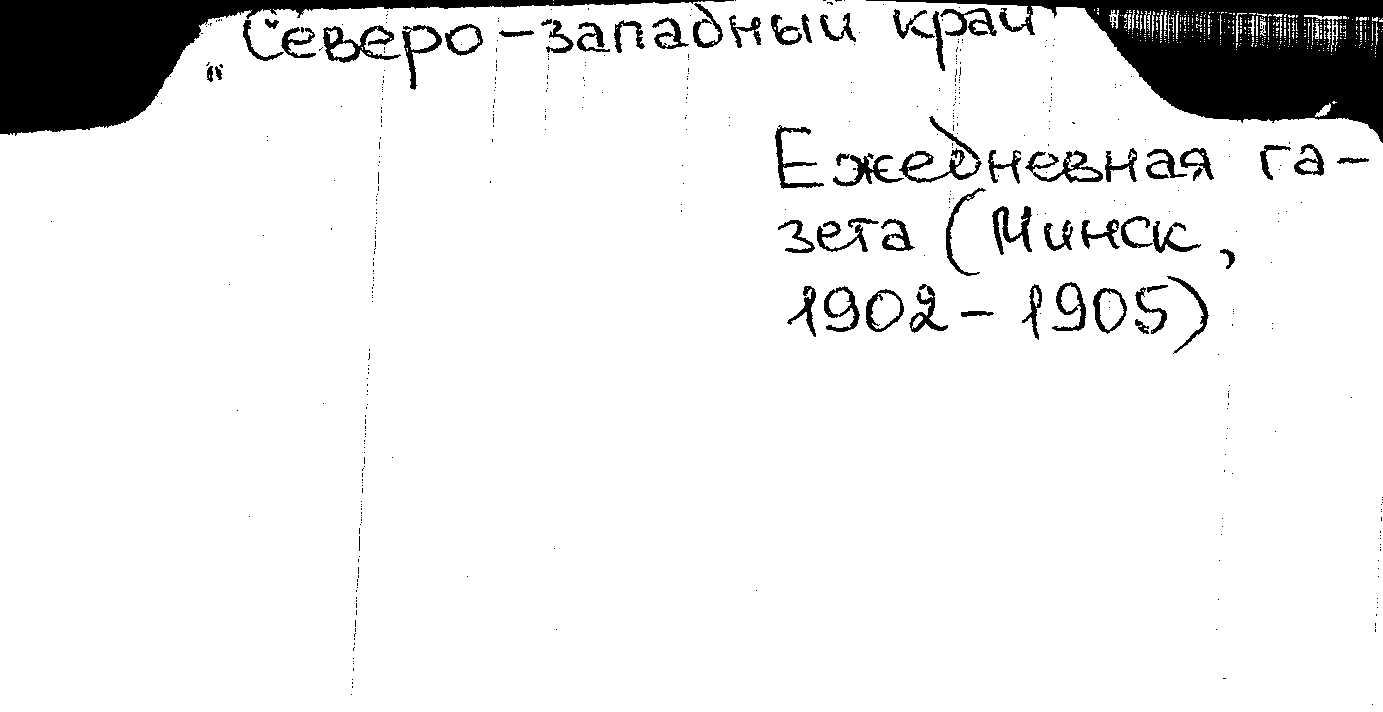 „Северо-западный край"
Ежедневная га-
зета (Минск,
1902-1905)